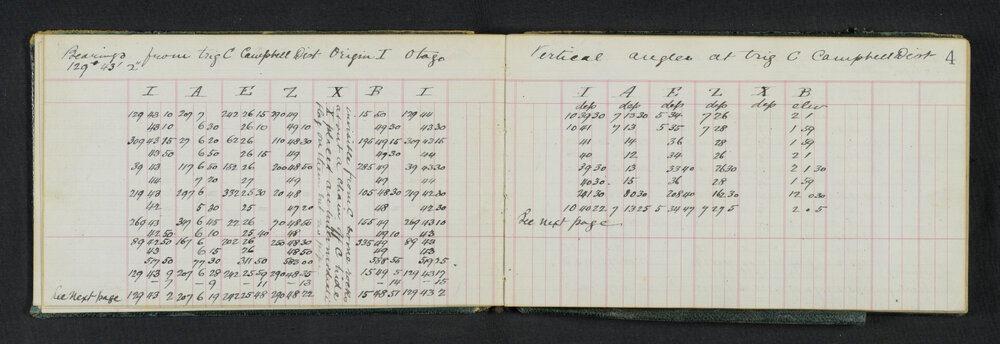 Bearings from trig C Campbell Dist Origin I Otago
129° 43' 2"
I A E Z X B I
129 43 10 207 7 242 26 15 290 49 15 50 129 44
43 10 6 30 26 10 49 10 49 30 43 30
309 43 45 27 6 20 62 26 110 48 30 195 49 15 309 43 15
43 50 6 50 26 15 49 49 30 44
39 43 117 6 50 152 26 200 48 50 285 49 39 43 30
44 7 20 27 49 49 44
219 43 297 6 332 25 30 20 48 105 48 30 219 42 30
42 5 30 25 47 20 48 42 30
269 43 347 6 45 22 26 70 48 50 155 49 269 43 10
42 50 6 10 25 40 48 49 10 43
89 42 50 167 6 202 26 250 48 30 335 49 89 43
43 6 15 26 48 50 49 43
517 50 77 30 311 50 583 00
129 43 9 207 6 28 242 25 59 290 48 35 15 49 5 129 43 17
– 7 – 9 – 11 – 13 – 14 – 15
See next page 129 43 2 207 6 19 242 25 48 290 48 22 15 48 51 129 43 2
invisible from C
X placed
Vertical angles at trig C Campbell Dist 4
I A E Z X B
dep dep dep dep dep elev
10 39 30 7 13 30 5 34 7 26 2 1
10 41 7 13 5 35 7 28 1 59
41 14 36 28 1 59
40 12 34 26 2 1
39 30 13 33 40 26 30 2 1 30
40 30 15 36 28 1 59
241 30 80 30 208 40 162 30 12 0 30
10 40 22 7 13 25 5 34 47 7 27 5 2 0 5
See next page